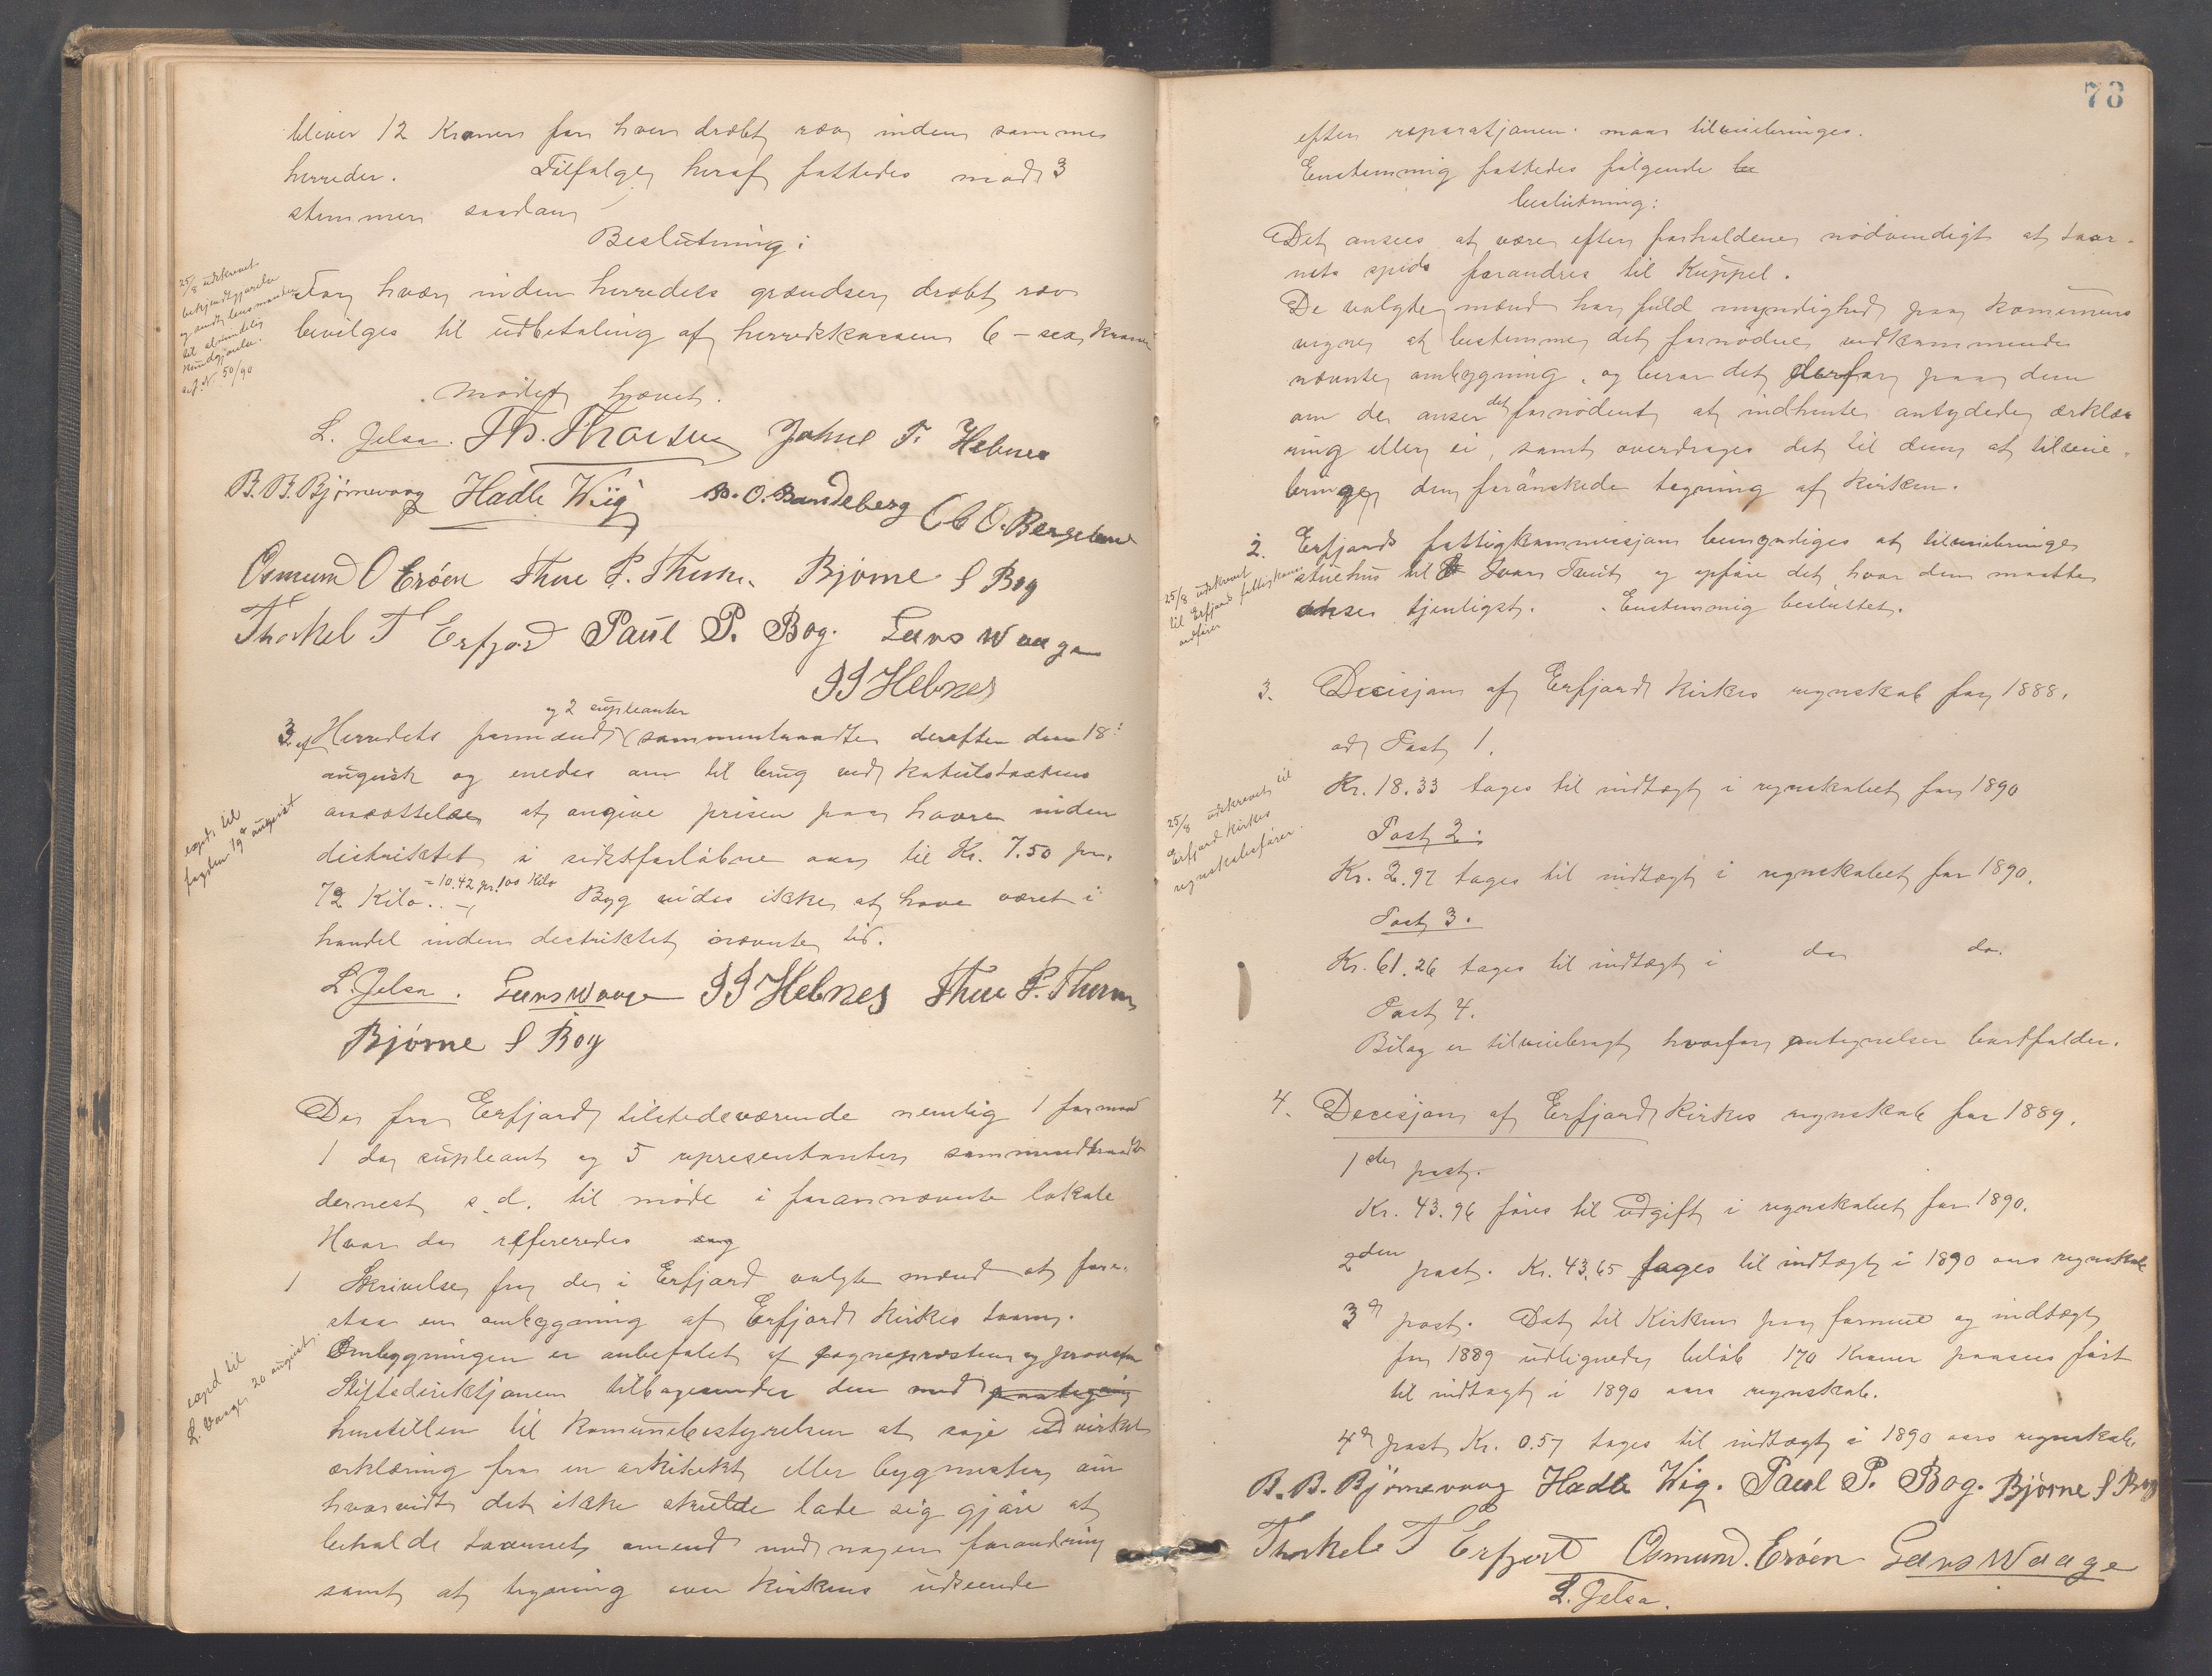 bliver 12 Kroner for hver dræbt ræv inden sammes
herreder. Tilfølge heraf fattedes mod 3
stemmer saadan
Beslutning:
For hver inden herredets grændser dræbt ræv
bevilges til udbetaling af herredskassen 6 – sex kroner
25/8 udskrevet
bekjendtgjørelse
og sendt lensmanden
til almindelig
kundgjørelse.
50/90
Mødet hævet.
L. Jelsa. Th. Thorsen Johne T. Hebnes
B. B. Bjørnevaag Hadle Wiig B. O. Sandeberg O. Bergeland
Osmund O Erøen Thue P. Thuen. Bjørne S Bog
Thorkel T Erfjord Paul P. Bog. Lars Waage
J J Hebnes
og 2 supleanter
3. Herredets formænd sammentraadte derefter den 18:
august og enedes om til brug ved kapitelstaxtens
ansættelse at angive prisen paa havre inden
distriktet i sidstforløbne aar til Kr. 7.50 pr.
72 Kilo. = 10.42 pr. 100 Kilo Byg vides ikke at have været i
handel inden distriktet nævnte tid.
exped. til
fogden 19de august
L. Jelsa. Lars Waage J J Hebnes Thue P. Thuen
Bjørne S Bog
De fra Erfjord tilstedeværende nemlig 1 formand
1 do supleant og 5 repræsentanter sammentraadte
dernest s. d. til møde i forannævnte lokale
Hvor da refereredes sag
1 Skrivelse fra de i Erfjord valgte mænd at fore-
staa en ombygning af Erfjord kirkes taarn.
Ombygningen er anbefalet af sogneprosten og provsten
Stiftsdirektjonen tilbagesender den med paategning
henstillen til komunebestyrelsen at søge udvirket
erklæring fra en arkitekt eller bygmester om
hvorvidt det ikke skulde lade sig gjøre at
beholde taarnet omend med nogen forandring
samt at tegning over kirkens udseende
exped til
L. Waage 20 august.
78
efter reparatjonen maa tilveiebringes.
Enstemmig fattedes følgende be
beslutning:
Det ansees at være efter forholdene nødvendigt at taar-
nets spids forandres til Kuppel.
De valgte mænd har fuld myndighed paa komunens
vegne at bestemme det fornødne vedkommende
nævnte ombygning, og beror det derfor paa dem
om de anser det fornødent at indhente antydede erklæ-
ring eller ei, samt overdrages det til dem at tilveie-
bringe den forønskede tegning af kirken.
2. Erfjord fattigkommissjon bemyndiges at tilveiebringe
stuehus til Ivar Taut og opføre det hvor dem maatte
anse tjenligst. Enstemmig besluttet.
25/8 udskrevet
til Erfjord fattigkom.
3. Decisjon af Erfjord kirkes regnskab for 1888.
ad Post 1.
Kr. 18.33 tages til indtægt i regnskabet for 1890
Post 2.
Kr. 2.97 tages til indtægt i regnskabet for 1890.
Post 3.
Kr. 61.26 tages til indtægt i do do.
Post 4.
Bilag er tilveiebragt hvorfor antegnelsen bortfalder.
25/8 udskrevet til
Erfjord kirkes
regnskabsfører.
4. Decisjon af Erfjord kirkes regnskab for 1889.
1ste post.
Kr. 43.96 føres til udgift i regnskabet for 1890.
2den post. Kr. 43.65 tages til indtægt i 1890 aars regnskab
3de post. Det til Kirken paa formue og indtægt
for 1889 udlignede beløb 170 Kroner paasees ført
til indtægt i 1890 aars regnskab.
4de post Kr. 0.57 tages til indtægt i 1890 aars regnskab.
B. B. Bjørnevaag Hadle Wiig. Paul P. Bog. Bjørne S Bog
Thorkel T Erfjord Osmund. Erøen Lars Waage
L. Jelsa.